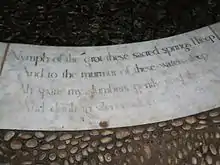 Nymph of the grot these sacred springs I keep
And to the murmur of these waters sleep
Ah spare my slumbers gently
And drink in silence